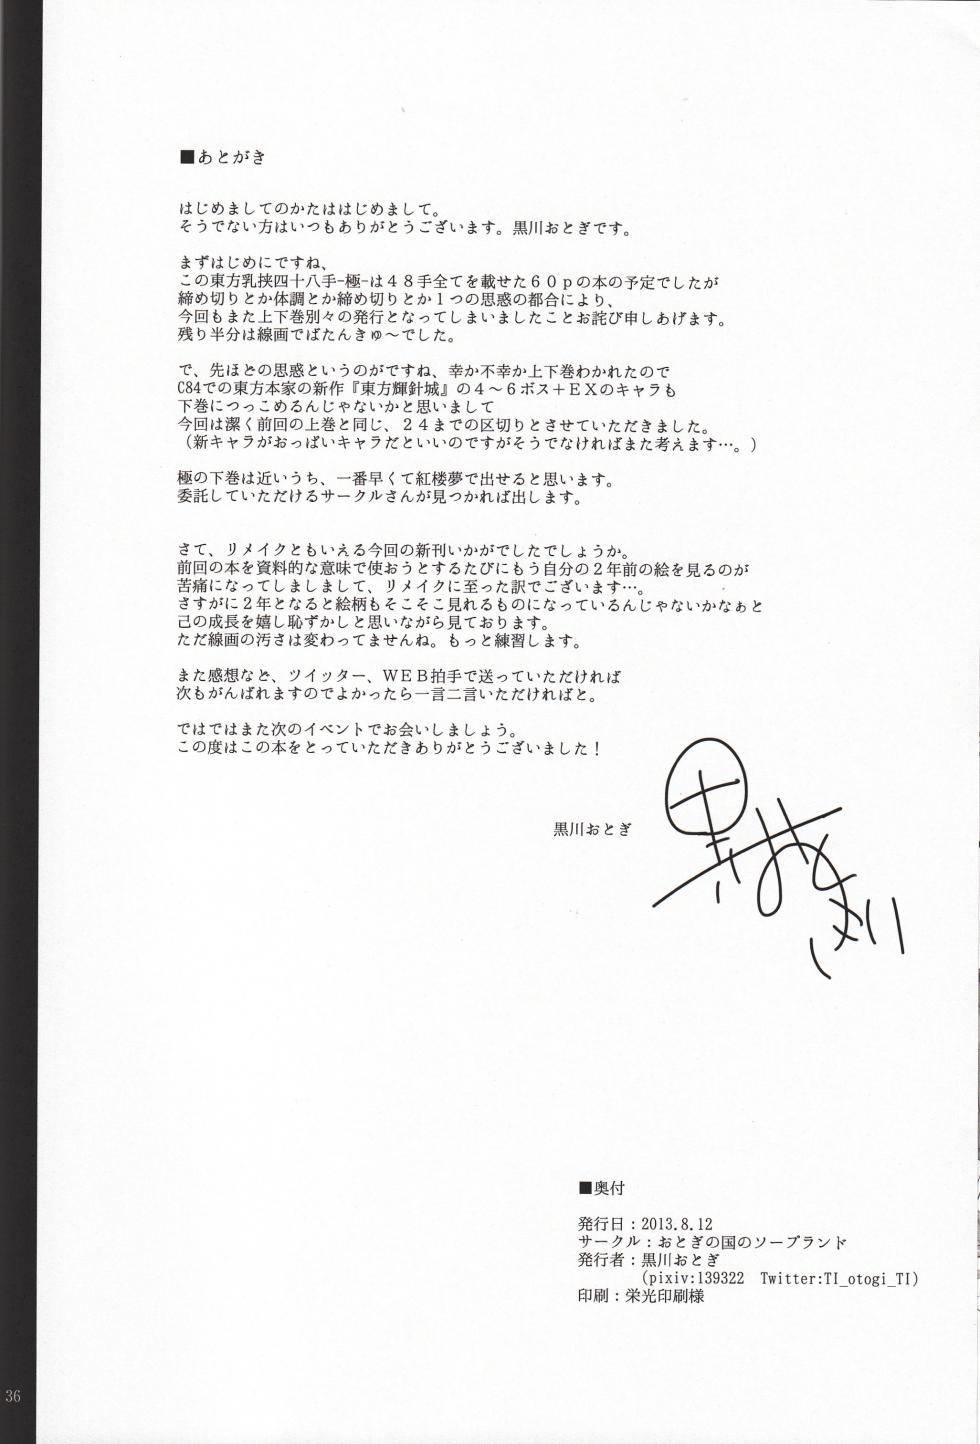 ■あとがき
はじめましてのかたははじめまして。
そうでない方はいつもありがとうございます。黒川おとぎです。
まずはじめにですね、
この東方乳挟四十八手-極-は４８手全てを載せた６０ｐの本の予定でしたが
締め切りとか体調とか締め切りとか１つの思惑の都合により、
今回もまた上下巻別々の発行となってしまいましたことお詫び申しあげます。
残り半分は線画でばたんきゅ～でした。
で、先ほどの思惑というのがですね、幸か不幸か上下巻わかれたので
C84での東方本家の新作『東方輝針城』の４～６ボス＋ＥＸのキャラも
下巻につっこめるんじゃないかと思いまして
今回は潔く前回の上巻と同じ、２４までの区切りとさせていただきました。
（新キャラがおっぱいキャラだといいのですがそうでなければまた考えます…。）
極の下巻は近いうち、一番早くて紅楼夢で出せると思います。
委託していただけるサークルさんが見つかれば出します。
さて、リメイクともいえる今回の新刊いかがでしたでしょうか。
前回の本を資料的な意味で使おうとするたびにもう自分の２年前の絵を見るのが
苦痛になってしましまして、リメイクに至った訳でございます…。
さすがに２年となると絵柄もそこそこ見れるものになっているんじゃないかなぁと
己の成長を嬉し恥ずかしと思いながら見ております。
ただ線画の汚さは変わってませんね。もっと練習します。
また感想など、ツイッター、ＷＥＢ拍手で送っていただければ
次もがんばれますのでよかったら一言二言いただければと。
ではではまた次のイベントでお会いしましょう。
この度はこの本をとっていただきありがとうございました！
黒川おとぎ
■奥付
発行日：2013.8.12
サークル：おとぎの国のソープランド
発行者：黒川おとぎ
(pixiv:139322 Twitter:TI_otogi_TI)
印刷：栄光印刷様
36